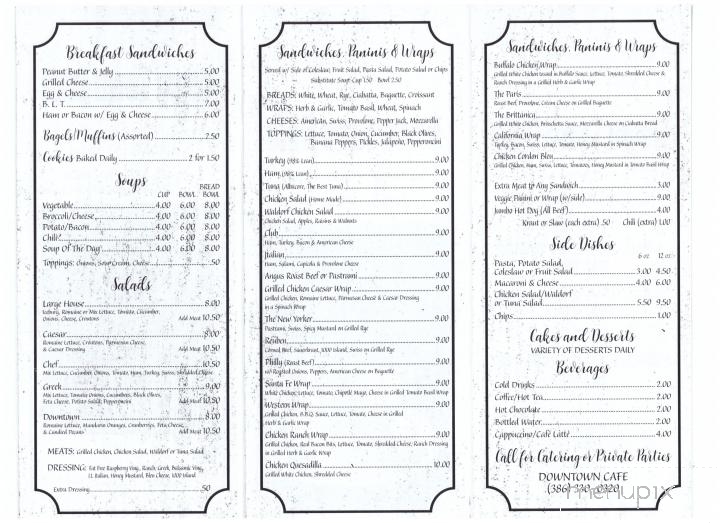 Breakfast Sandwiches
Peanut Butter & Jelly 5.00
Grilled Cheese 5.00
Egg & Cheese 5.00
B. L. T. 7.00
Ham or Bacon w/ Egg & Cheese 6.00
Bagels/Muffins (Assorted) 2.50
Cookies Baked Daily 2 for 1.50
Soups
CUP BOWL BREAD BOWL
Vegetable 4.00 6.00 8.00
Broccoli/Cheese 4.00 6.00 8.00
Potato/Bacon 4.00 6.00 8.00
Chili 4.00 6.00 8.00
Soup Of The Day 4.00 6.00 8.00
Toppings: Onions, Sour Cream, Cheese .50
Salads
Large House 8.00
Iceberg, Romaine or Mix Lettuce, Tomato, Cucumber,
Onions, Cheese, Croutons Add Meat 10.50
Caesar 8.00
Romaine Lettuce, Croutons, Parmesan Cheese,
& Caesar Dressing Add Meat 10.50
Chef 10.50
Mix Lettuce, Cucumber, Onions, Tomato, Ham, Turkey, Swiss, Shredded Cheese
Greek 9.00
Mix Lettuce, Tomato, Onions, Cucumbers, Black Olives,
Feta Cheese, Potato Salad, Pepperoncini Add Meat 10.50
Downtown 8.00
Romaine Lettuce, Mandarin Oranges, Cranberries, Feta Cheese,
& Candied Pecans Add Meat 10.50
MEATS: Grilled Chicken, Chicken Salad, Waldorf or Tuna Salad
DRESSING: Fat Free Raspberry Ving., Ranch, Greek, Balsamic Ving.,
Lt. Italian, Honey Mustard, Bleu Cheese, 1000 Island
Extra Dressing .50
Sandwiches, Paninis & Wraps
Served w/ Side of Coleslaw, Fruit Salad, Pasta Salad, Potato Salad or Chips
Substitute Soup: Cup 1.50 Bowl 2.50
BREADS: White, Wheat, Rye, Ciabatta, Baguette, Croissant
WRAPS: Herb & Garlic, Tomato Basil, Wheat, Spinach
CHEESES: American, Swiss, Provolone, Pepper Jack, Mozzarella
TOPPINGS: Lettuce, Tomato, Onion, Cucumber, Black Olives,
Banana Peppers, Pickles, Jalapeño, Pepperoncini
Turkey (98% Lean) 9.00
Ham (98% Lean) 9.00
Tuna (Albacore, The Best Tuna) 9.00
Chicken Salad (Home Made) 9.00
Waldorf Chicken Salad 9.00
Chicken Salad, Apples, Raisins & Walnuts
Club 9.00
Ham, Turkey, Bacon & American Cheese
Italian 9.00
Ham, Salami, Capicola & Provolone Cheese
Angus Roast Beef or Pastrami 9.00
Grilled Chicken Caesar Wrap 9.00
Grilled Chicken, Romaine Lettuce, Parmesan Cheese & Caesar Dressing
in a Spinach Wrap
The New Yorker 9.00
Pastrami, Swiss, Spicy Mustard on Grilled Rye
Reuben 9.00
Corned Beef, Sauerkraut, 1000 Island, Swiss on Grilled Rye
Philly (Roast Beef) 9.00
w/ Roasted Onions, Peppers, American Cheese on Baguette
Santa Fe Wrap 9.00
White Chicken, Lettuce, Tomato, Chipotle Mayo, Cheese in Grilled Tomato Basil Wrap
Western Wrap 9.00
Grilled Chicken, B.B.Q. Sauce, Lettuce, Tomato, Cheese in Grilled
Herb & Garlic Wrap
Chicken Ranch Wrap 9.00
Grilled Chicken, Real Bacon Bits, Lettuce, Tomato, Shredded Cheese, Ranch Dressing
in Grilled Herb & Garlic Wrap
Chicken Quesadilla 10.00
Grilled White Chicken, Shredded Cheese
Sandwiches, Paninis & Wraps
Buffalo Chicken Wrap 9.00
Grilled White Chicken tossed in Buffalo Sauce, Lettuce, Tomato, Shredded Cheese &
Ranch Dressing in a Grilled Herb & Garlic Wrap
The Paris 9.00
Roast Beef, Provolone, Cream Cheese on Grilled Baguette
The Brittanica 9.00
Grilled White Chicken, Bruschetta Sauce, Mozzarella Cheese on Ciabatta Bread
California Wrap 9.00
Turkey, Bacon, Swiss, Lettuce, Tomato, Honey Mustard in Spinach Wrap
Chicken Cordon Bleu 9.00
Grilled Chicken, Ham, Swiss, Lettuce, Tomatoes, Honey Mustard in Tomato Basil Wrap
Extra Meat to Any Sandwich 3.00
Veggie Panini or Wrap (w/side) 9.00
Jumbo Hot Dog (All Beef) 4.00
Kraut or Slaw (each extra) .50 Chili (extra) 1.00
Side Dishes
6 oz. 12 oz.
Pasta, Potato Salad,
Coleslaw or Fruit Salad 3.00 4.50
Macaroni & Cheese 4.00 6.00
Chicken Salad/Waldorf
or Tuna Salad 5.50 9.50
Chips 1.00
Cakes and Desserts
VARIETY OF DESSERTS DAILY
Beverages
Cold Drinks 2.00
Coffee/Hot Tea 2.00
Hot Chocolate 2.00
Bottled Water 2.00
Cappuccino/Café Latté 4.00
Call for Catering or Private Parties
DOWNTOWN CAFE
(386) 330-0320
menupix